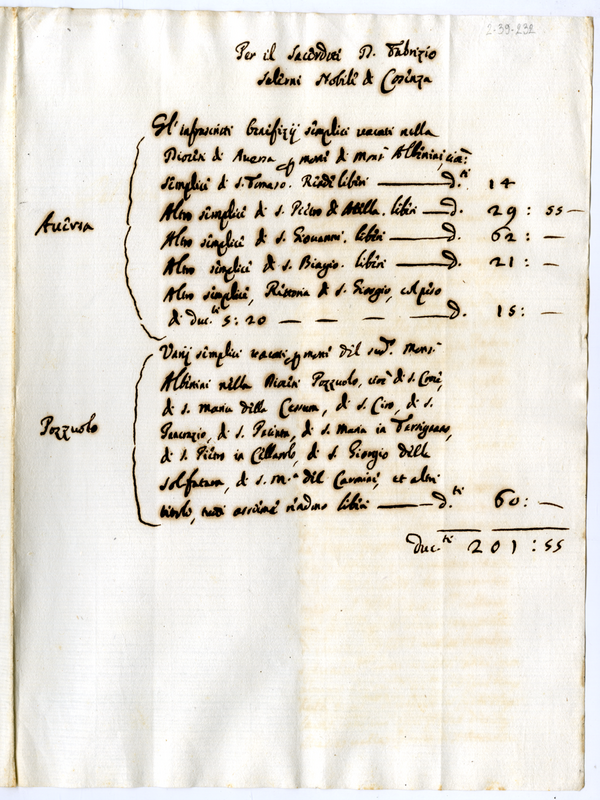 2-39-232
Per il Sacerdote D. Fabrizio
Salerni Nobile di Cosenza
Gl' infrascritti benefizij semplici vacati nella
Diocesi di Aversa p morte di Mons.r Albinini cioè:
Semplice di S. Tomaso. Rende liberi — D.ti 14
Altro semplice di S. Pietro di Atella. liberi — D. 29 : 55 —
Altro semplice di S. Giovanni. liberi — D. 62 : —
Altro semplice di S. Biagio. liberi — D. 21 : —
Altro semplice, Rettoria di S. Giorgio, col peso
di duc.ti 5 : 20 — — — — D. 15 : —
Aversa
Varij semplici vacati p morte del sud.o Mons.r
Albinini nella Diocesi Pozzuolo, cioè di S.
di S. Maria della, di S. Ciro, di S.
di S., di S. Maria in
di S. Pietro in, di S. Giorgio della
solfatara, di S. M.a del Carmine, et altri
titoli, tutti assieme rendono liberi — D.ti 60 : —
Pozzuolo
duc.ti 201 : 55